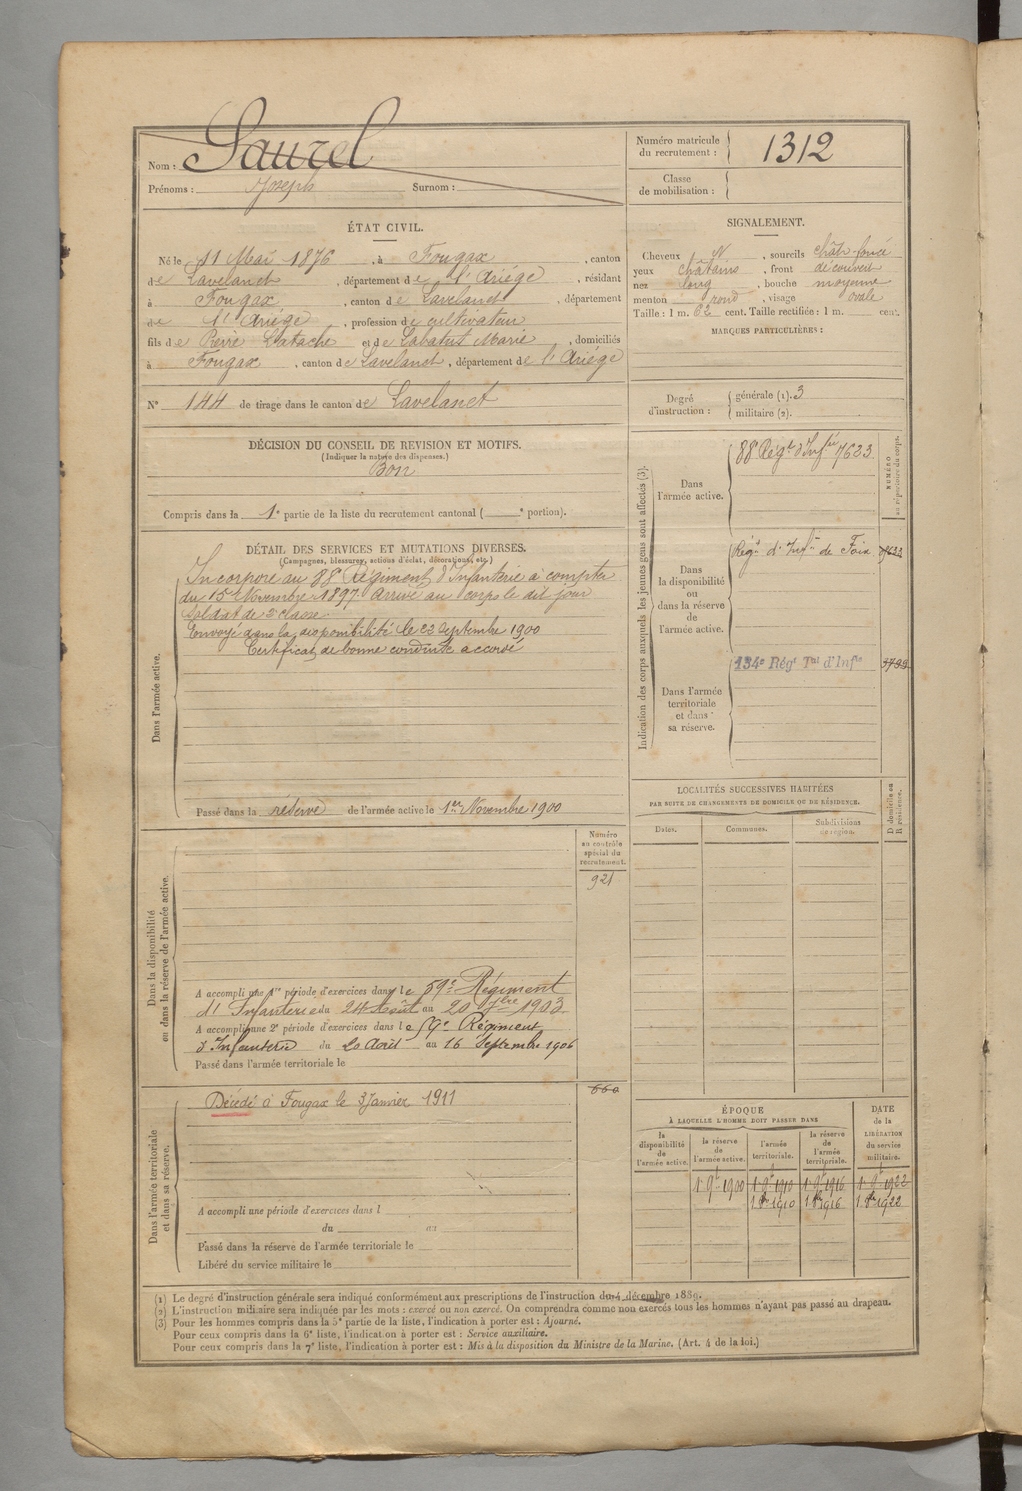 Nom : Saurel
Prénoms : Joseph Surnom :
Numéro matricule du recrutement : 1312
Classe de mobilisation :
ÉTAT CIVIL.
Né le 11 Mai 1876, à Fougax, canton
de Lavelanet, département de l'Ariége, résidant
à Fougax, canton de Lavelanet, département
de l'Ariége, profession de cultivateur
fils de Pierre Latache et de Labatut Marie, domiciliés
à Fougax, canton de Lavelanet, département de l'Ariége
N° 144 de tirage dans le canton de Lavelanet
SIGNALEMENT.
Cheveux N, sourcils chât. foncé
yeux châtains, front découvert
nez long, bouche moyenne
menton rond, visage ovale
Taille : 1 m. 62 cent. Taille rectifiée : 1 m. cent.
MARQUES PARTICULIÈRES :
Degré d'instruction : générale (1). 3
militaire (2).
DÉCISION DU CONSEIL DE REVISION ET MOTIFS.
(Indiquer la nature des dispenses.)
Bon
Compris dans la 1e partie de la liste du recrutement cantonal ( e portion).
DÉTAIL DES SERVICES ET MUTATIONS DIVERSES.
(Campagnes, blessures, actions d'éclat, décorations, etc.)
Dans l'armée active.
Incorporé au 88e Régiment d'Infanterie à compter
du 15 Novembre 1897. Arrivé au corps le dit jour
soldat de 2e classe.
Envoyé dans la disponibilité le 22 Septembre 1900
Certificat de bonne conduite accordé
Passé dans la réserve de l'armée active le 1er Novembre 1900
Indication des corps auxquels les jeunes gens sont affectés (3).
NUMÉRO au répertoire du corps.
Dans l'armée active.
88 Régt d'Infie 7623
Dans la disponibilité ou dans la réserve de l'armée active.
Régt d'Infie de Foix
Dans l'armée territoriale et dans sa réserve.
134e Régt Tal d'Infie
LOCALITÉS SUCCESSIVES HABITÉES
PAR SUITE DE CHANGEMENTS DE DOMICILE OU DE RÉSIDENCE.
Dates. Communes. Subdivisions de région. D domicile ou R résidence.
Dans la disponibilité ou dans la réserve de l'armée active.
Numéro au contrôle spécial du recrutement.
921
A accompli une 1re période d'exercices dans le 59e Régiment
d'Infanterie du 24 Août au 20 7bre 1903
A accompli une 2e période d'exercices dans le 59e Régiment
d'Infanterie du 20 Août au 16 Septembre 1906
Passé dans l'armée territoriale le
660
Dans l'armée territoriale et dans sa réserve.
Décédé à Fougax le 3 Janvier 1911
A accompli une période d'exercices dans l
du au
Passé dans la réserve de l'armée territoriale le
Libéré du service militaire le
ÉPOQUE
À LAQUELLE L'HOMME DOIT PASSER DANS
DATE de la LIBÉRATION du service militaire.
la disponibilité de l'armée active. la réserve de l'armée active. l'armée territoriale. la réserve de l'armée territoriale.
1 9t 1900 1 9t 1910 1 9t 1916 1 9t 1922
1 8bre 1910 1 8bre 1916 1 8bre 1922
(1) Le degré d'instruction générale sera indiqué conformément aux prescriptions de l'instruction du 4 décembre 1889.
(2) L'instruction militaire sera indiquée par les mots : exercé ou non exercé. On comprendra comme non exercés tous les hommes n'ayant pas passé au drapeau.
(3) Pour les hommes compris dans la 5e partie de la liste, l'indication à porter est : Ajourné.
Pour ceux compris dans la 6e liste, l'indication à porter est : Service auxiliaire.
Pour ceux compris dans la 7e liste, l'indication à porter est : Mis à la disposition du Ministre de la Marine. (Art. 4 de la loi.)